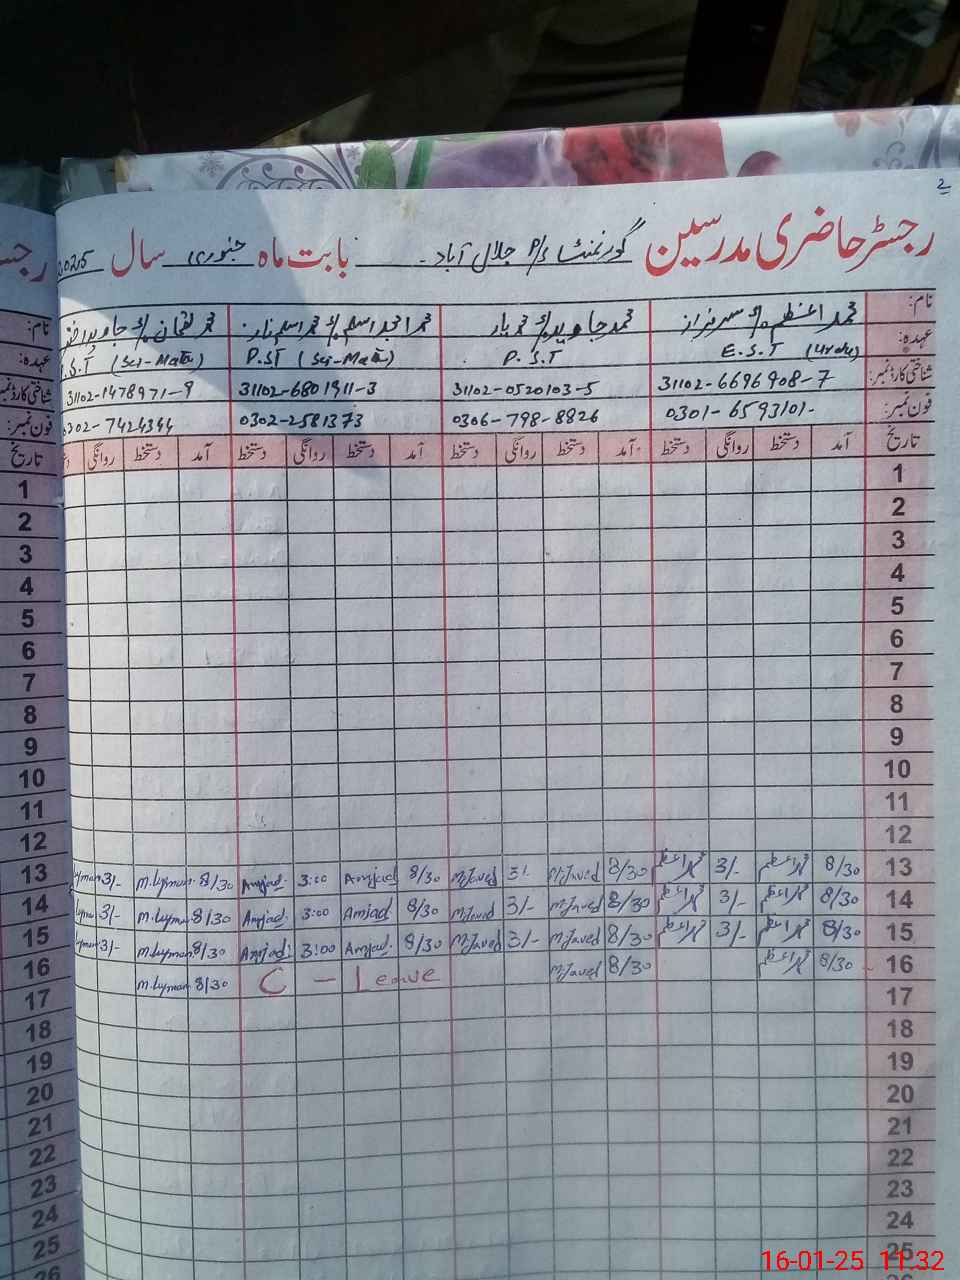 2
رجسٹر حاضری مدرسین گورنمنٹ P/S جلال آباد بابت ماہ جنوری سال 2025
نام: محمد اعظم S/o سرفراز محمد جاوید S/o محمد یار محمد امجد اسلم S/o محمد اسلم ناز محمد لقمان S/o جاوید
عہدہ: E.S.T (Urdu) P.S.T P.ST (Sci-Math) .S.T (Sci-Math)
شناختی کارڈ نمبر: 31102-6696908-7 31102-0520103-5 31102-6801911-3 31102-1478971-9
فون نمبر: 0301-6593101- 0306-798-8826 0302-2581373 0302-7424344
تاریخ آمد دستخط روانگی دستخط آمد دستخط روانگی دستخط آمد دستخط روانگی دستخط آمد دستخط روانگی
1
2
3
4
5
6
7
8
9
10
11
12
13 8/30 محمد اعظم 3/- محمد اعظم 8/30 M.Javed 3/- M.Javed 8/30 Amjad 3:00 Amjad 8/30 M.luqman 3/-
14 8/30 محمد اعظم 3/- محمد اعظم 8/30 M.Javed 3/- M.Javed 8/30 Amjad 3:00 Amjad 8/30 M.luqman 3/-
15 8/30 محمد اعظم 3/- محمد اعظم 8/30 M.Javed 3/- M.Javed 8/30 Amjad 3:00 Amjad 8/30 M.luqman 3/-
16 8/30 محمد اعظم 8/30 M.Javed C - Leave 8/30 M.luqman
17
18
19
20
21
22
23
24
25
رجـ
نام:
عہدہ:
شناختی کارڈ نمبر
فون نمبر:
تاریخ
1
2
3
4
5
6
7
8
9
10
11
12
13
14
15
16
17
18
19
20
21
22
23
24
25
26
16-01-25 11:32